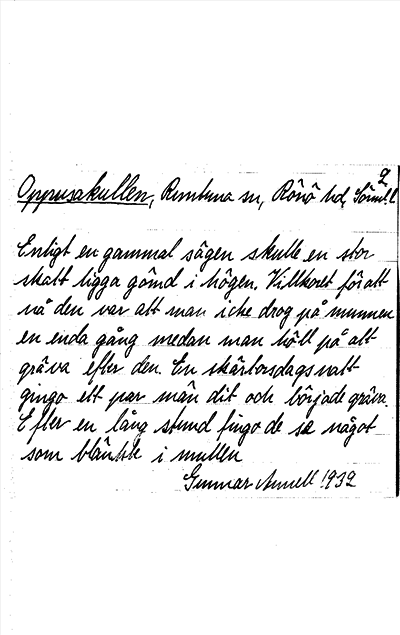 2
Oppusakullen, Runtuna sn, Rönö hd, Sörml. l.
Enligt en gammal sägen skulle en stor
skatt ligga gömd i högen. Villkoret för att
nå den var att man icke drog på munnen
en enda gång medan man höll på att
gräva efter den. En skärtorsdagsnatt
gingo ett par män dit och började gräva.
Efter en lång stund fingo de se något
som blänkte i mullen
Gunnar Annell 1932